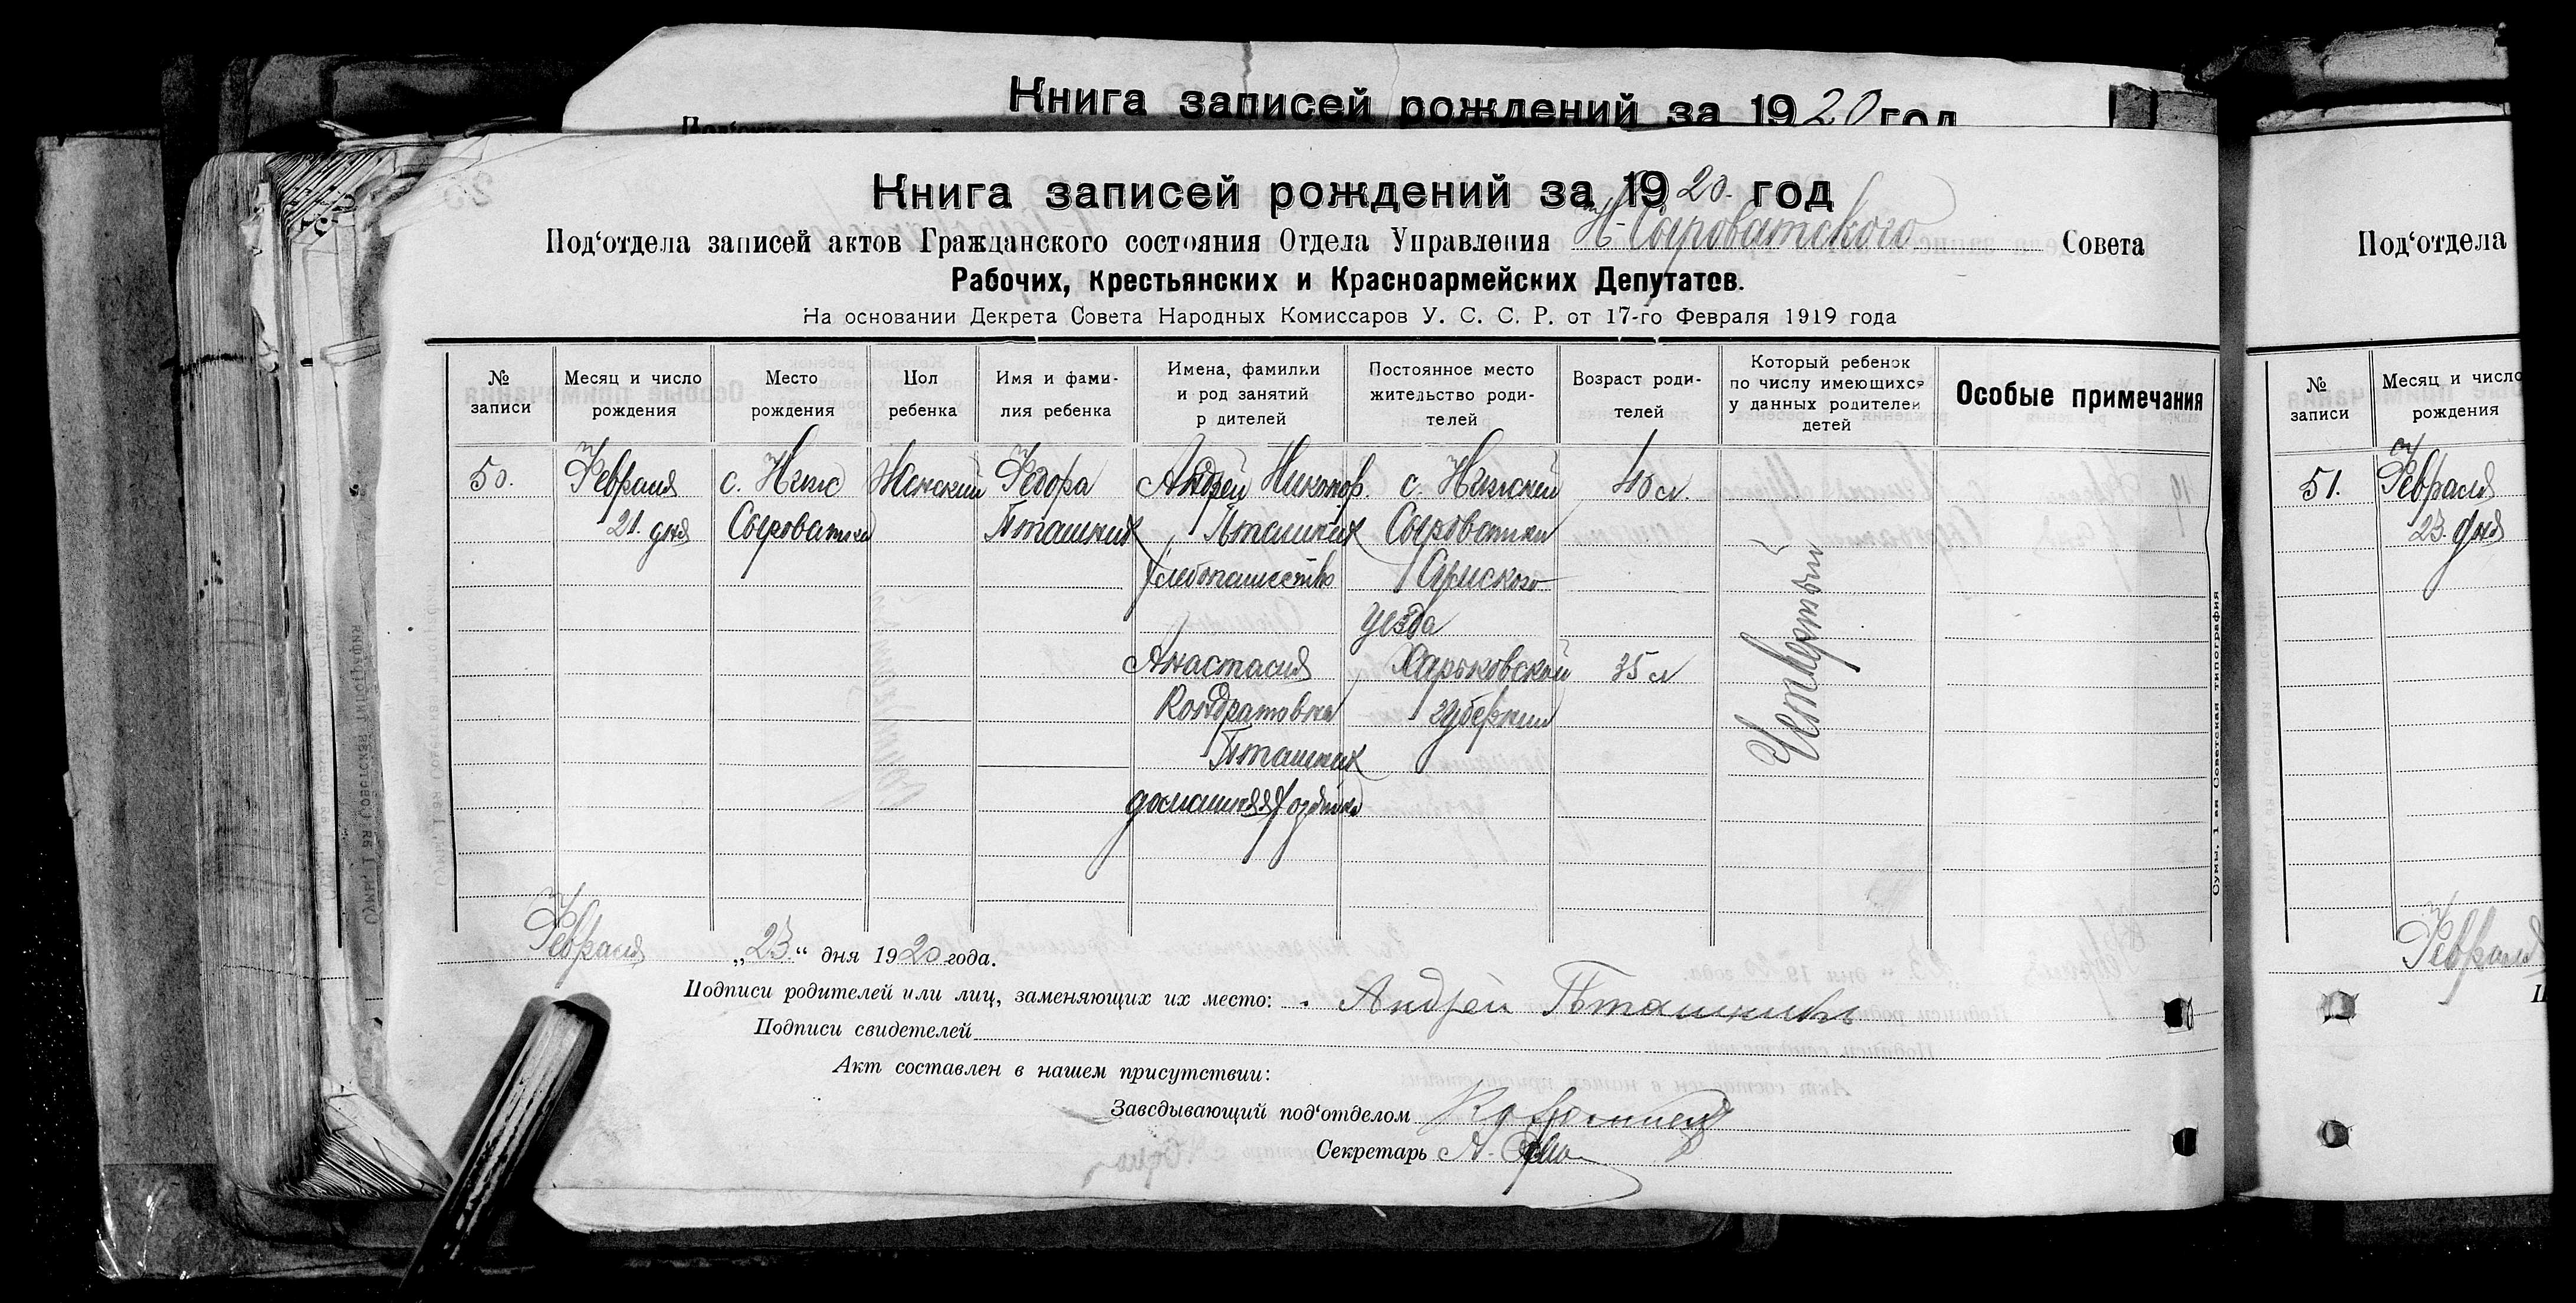 Книга записей рождений за 1920 год
Книга записей рождений за 1920. год
Под‘отдела записей актов Гражданского состояния Отдела Управления Н-Сыроватского Совета
Рабочих, Крестьянских и Красноармейских Депутатов.
На основании Декрета Совета Народных Комиссаров У. С. С. Р. от 17-го Февраля 1919 года
№ записи
Месяц и число рождения
Место рождения
Пол ребенка
Имя и фами-
лия ребенка
Имена, фамилии
и род занятий
р дителей
Постоянное место
жительство роди-
телей
Возраст роди-
телей
Который ребенок
по числу имеющихся
у данных родителей
детей
Особые примечания
50.
Февраля
21. дня
с. Нижн
Сыроватка
Женский
Федора
Пташник
Андрей Никонор.
Пташник
Хлебопашество
Анастасия
Кондратовна
Пташник
домашняя Хозяйка
с. Нижней
Сыроватки
Сумского
уезда
Харьковской
губернии
40 л.
35 л
Четвертый
Февраля „23“ дня 1920 года.
Подписи родителей или лиц, заменяющих их место: Андрей Пташникъ
Подписи свидетелей
Акт составлен в нашем присутствии:
Заведывающий под‘отделом
Секретарь А.
Сумы, 1 ая Советская типография
Под‘отдела
№ записи
Месяц и число
рождения
51.
Февраля
23. дня
Февраля